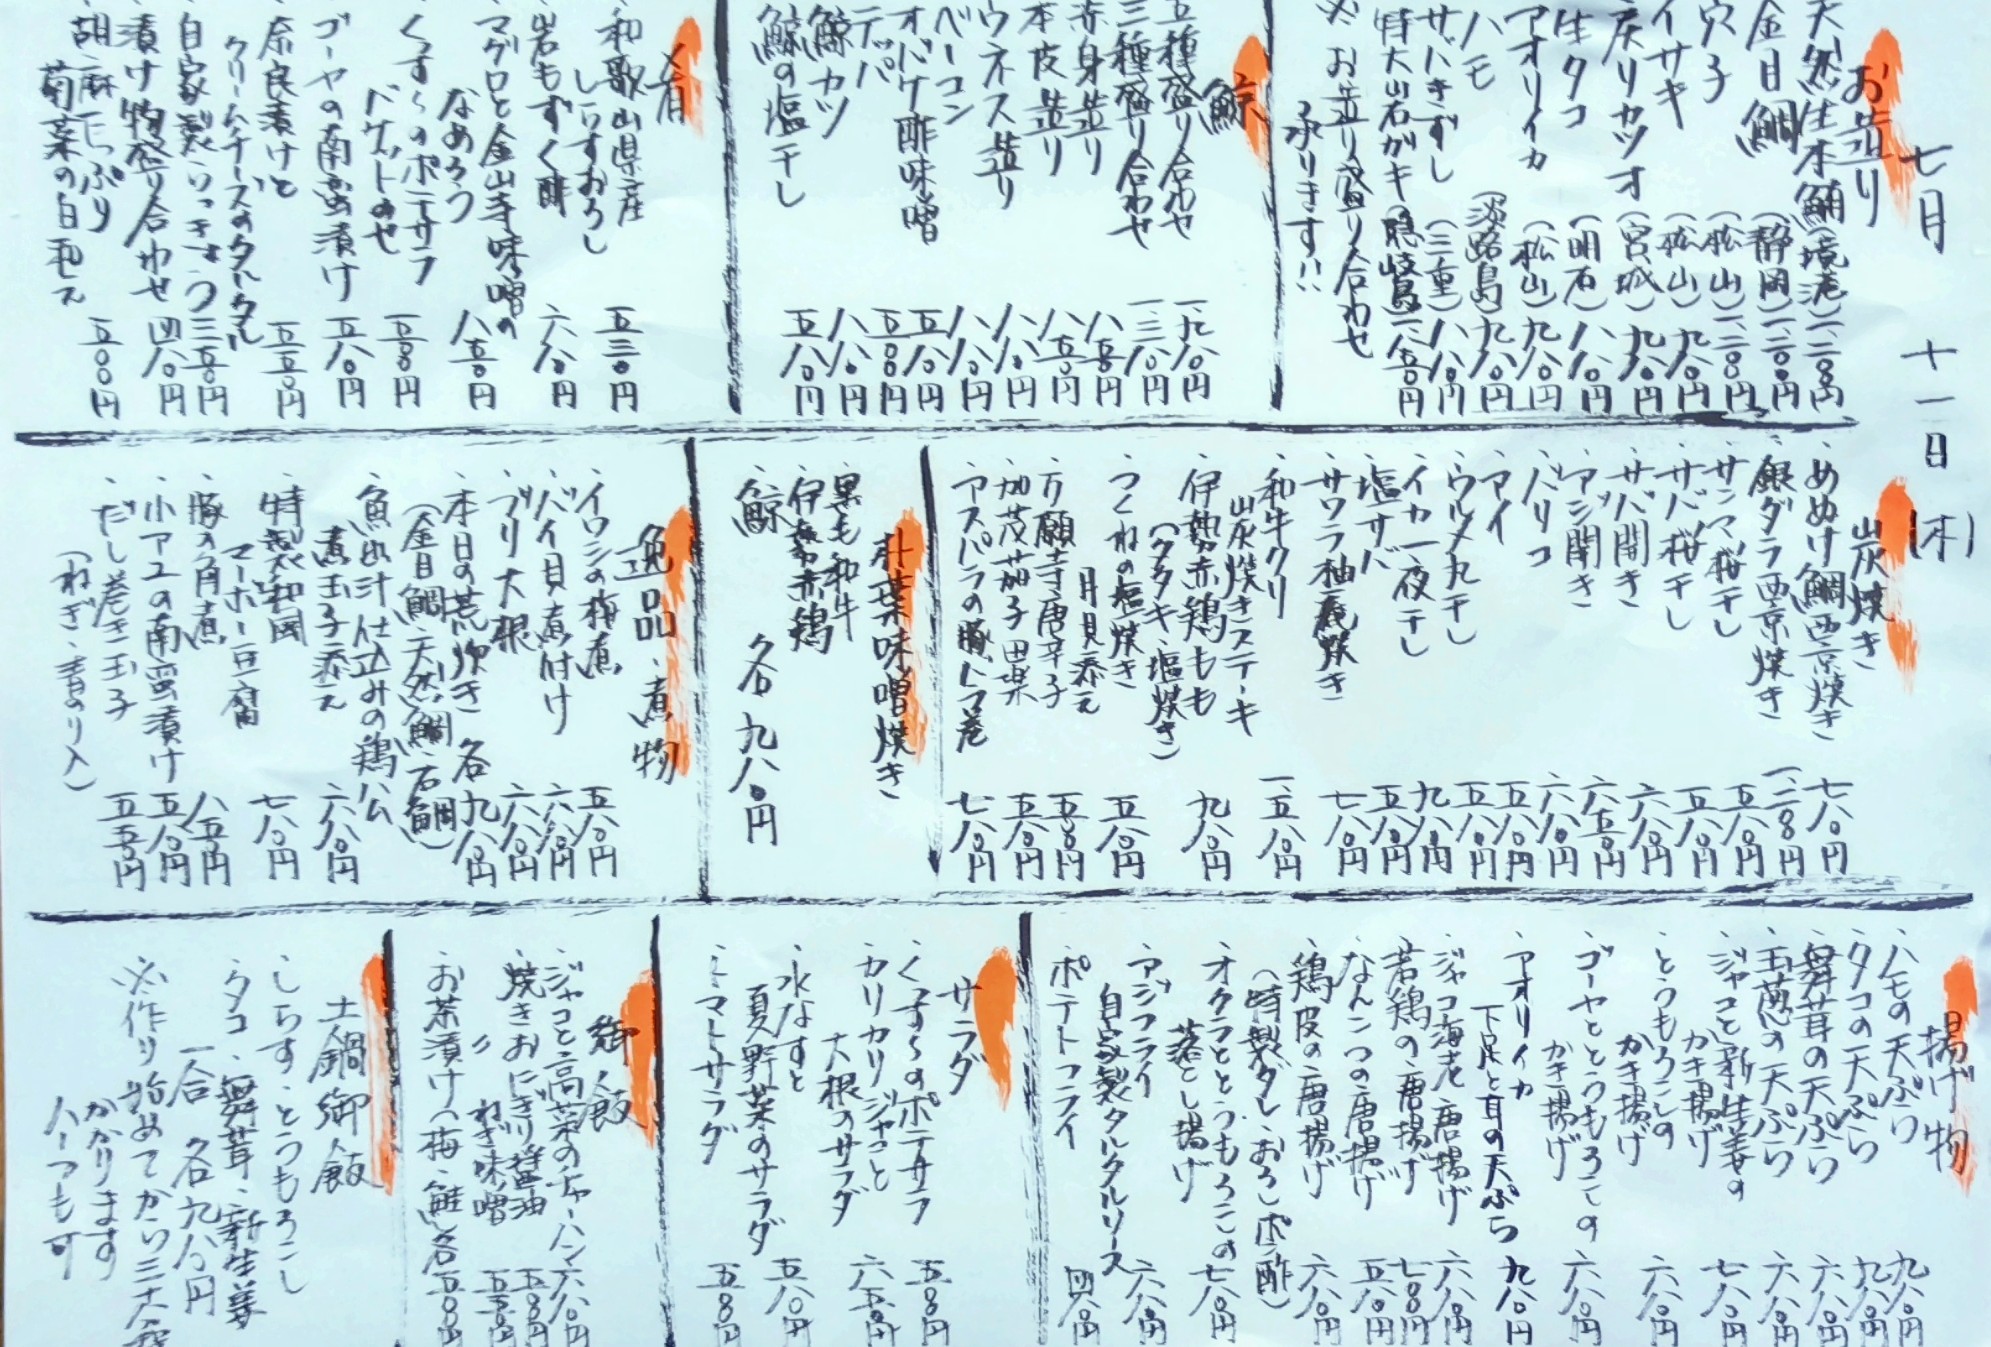 七月 十一日(木)
お造り
天然生本鮪(境港)一、二〇〇円
金目鯛(静岡)一、二〇〇円
穴子(松山)一、二〇〇円
イサキ(松山)九八〇円
戻りカツオ(宮城)九八〇円
生タコ(明石)八八〇円
アオリイカ(松山)九八〇円
ハモ(淡路島)九八〇円
サバきずし(三重)八八〇円
特大岩ガキ(隠岐島)一、八五〇円
※お造り盛り合わせ
承ります!!
鯨
五種盛り合わせ 一、九八〇円
三種盛り合わせ 一、三八〇円
赤身造り 八五〇円
本皮造り 八五〇円
ウネス造り 八八〇円
ベーコン 八八〇円
オバケ酢味噌 五八〇円
テッパ 五八〇円
鯨カツ 八八〇円
鯨の塩干し 五八〇円
肴
和歌山県産
しらすおろし 五三〇円
岩もずく酢 六八〇円
マグロと金山寺味噌の
なめろう 八五〇円
くずしのポテサラ
バゲットのせ 五五〇円
ゴーヤの南蛮漬け 五八〇円
奈良漬けと
クリームチーズのタルタル 五五〇円
自家製らっきょう 三五〇円
漬け物盛り合わせ 四八〇円
胡麻たっぷり
菊菜の白和え 五〇〇円
炭焼き
めぬけ鯛西京焼き 七八〇円
銀ダラ西京焼き 一、二八〇円
サンマ桜干し 五八〇円
サバ桜干し 五八〇円
サバ開き 六八〇円
アジ開き 六五〇円
バリコ 六八〇円
アイ 五八〇円
ウルメ丸干し 五八〇円
イカ一夜干し 九八〇円
塩サバ 五八〇円
サワラ柚庵焼き 七八〇円
和牛クリ
炭焼きステーキ 一、五八〇円
伊勢赤鶏もも
(タタキ・塩焼き) 九八〇円
つくねの塩焼き
月見添え 五八〇円
万願寺唐辛子 五五〇円
加茂茄子田楽 五八〇円
アスパラの豚トロ巻 七八〇円
朴葉味噌焼き
黒毛和牛
伊勢赤鶏
鯨
各 九八〇円
逸品・煮物
イワシの梅煮 五八〇円
バイ貝煮付け 六八〇円
ブリ大根 六八〇円
本日の荒炊き 各九八〇円
(金目鯛・天然鯛・石鯛)
魚出汁仕込みの鶏ハム
煮玉子添え 六八〇円
特製和風
マーボー豆腐 七八〇円
豚の角煮 八五〇円
小アユの南蛮漬け 五八〇円
だし巻き玉子 五五〇円
(ねぎ・青のり入)
揚げ物
ハモの天ぷら 九八〇円
タコの天ぷら 九八〇円
舞茸の天ぷら 六八〇円
玉葱の天ぷら 六八〇円
ジャコと新生姜の
かき揚げ 七八〇円
とうもろこしの
かき揚げ 六八〇円
ゴーヤととうもろこしの
かき揚げ 六八〇円
アオリイカ
下足と耳の天ぷら 九八〇円
ジャコ海老唐揚げ 六八〇円
若鶏の唐揚げ 七八〇円
なんこつの唐揚げ 五八〇円
鶏皮の唐揚げ 六八〇円
(特製ダレ・おろしポン酢)
オクラととうもろこしの
落とし揚げ 七八〇円
アジフライ
自家製タルタルソース 六八〇円
ポテトフライ 四八〇円
サラダ
くずしのポテサラ 五五〇円
カリカリジャコと
大根のサラダ 六五〇円
水なすと
夏野菜のサラダ 五八〇円
トマトサラダ 五五〇円
御飯
ジャコと高菜のチャーハン 六八〇円
焼きおにぎり醤油 五五〇円
〃 ねぎ味噌 五五〇円
お茶漬け(梅・鮭)各五五〇円
土鍋御飯
しらす・とうもろこし
タコ・舞茸・新生姜
一合 各九八〇円
※作り始めてから三十分程
かかります
ハーフも可